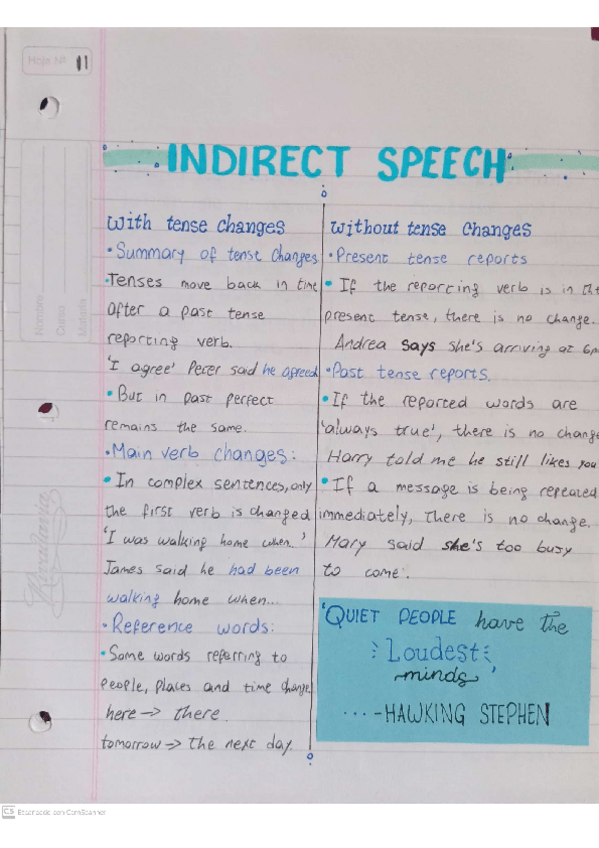 Hoja Nº 11
Nombre
Curso
Materia
INDIRECT SPEECH
With tense changes
• Summary of tense changes
• Tenses move back in time
after a past tense
reporting verb.
'I agree' Peter said he agreed
• But in past perfect
remains the same.
• Main verb changes:
• In complex sentences, only
the first verb is changed
'I was walking home when.'
James said he had been
walking home when...
• Reference words:
• Some words referring to
people, places and time change
here → there.
tomorrow → the next day.
Without tense changes
• Present tense reports
• If the reporting verb is in the
present tense, there is no change.
Andrea says she's arriving at 6pm
• Past tense reports.
• If the reported words are
'always true', there is no change
Harry told me he still likes you
• If a message is being repeated
immediately, there is no change.
Mary said she's too busy
to come.
'QUIET PEOPLE have the
Loudest
minds'
....-HAWKING STEPHEN
CS Escaneado con CamScanner